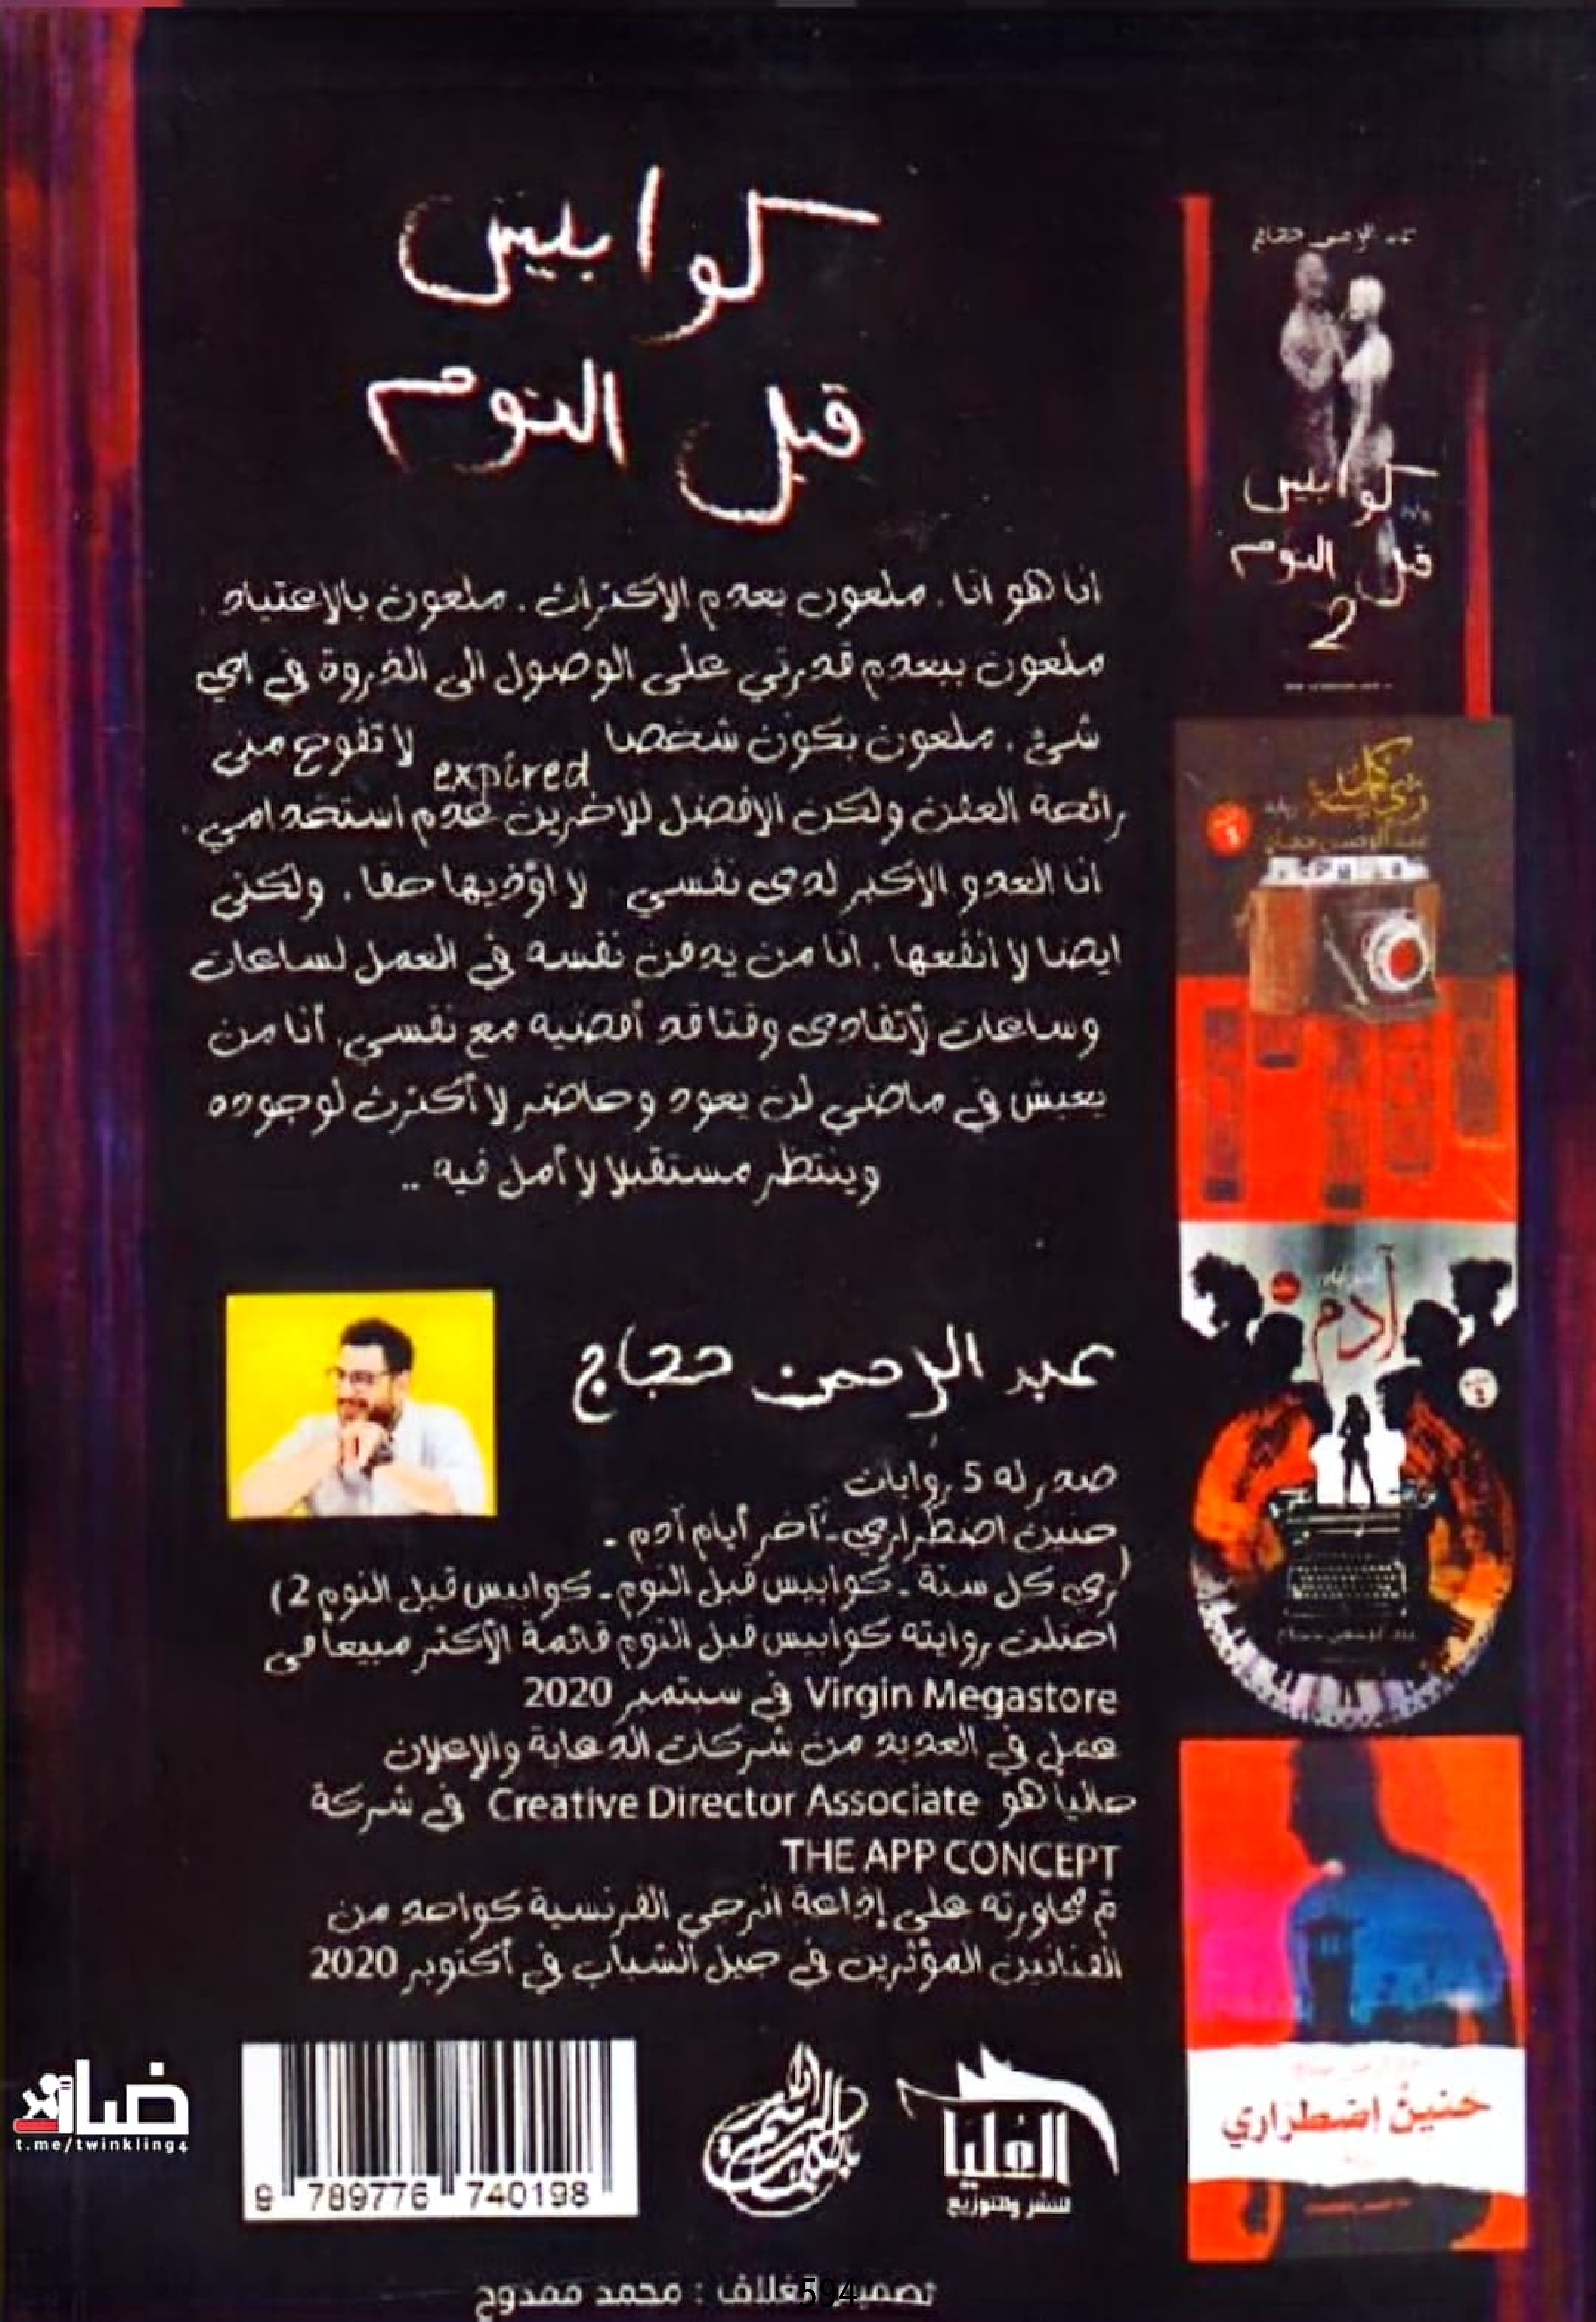 كوابيس
قبل النوم
انا هو انا . ملعون بعدم الاكتراث . ملعون بالاعتياد .
ملعون ببعدم قدرتي على الوصول الى الذروة في اي
شئ . ملعون بكون شخصا expired لا تفوح منى
رائحة العفن ولكن الافضل للاخرين عدم استخدامي .
انا العدو الاكبر لدى نفسي لا اؤذيها حقا . ولكنى
ايضا لا انفعها . انا من يدفن نفسه في العمل لساعات
وساعات لأتفادى وقتا قد أقضيه مع نفسي . أنا من
يعيش في ماضي لن يعود وحاضر لا أكترث لوجوده
وينتظر مستقبلا لا أمل فيه ..
عبد الرحمن حجاج
صدر له 5 روايات
حنين اضطراري - آخر أيام آدم -
(زي كل سنة - كوابيس قبل النوم - كوابيس قبل النوم 2)
احتلت روايته كوابيس قبل النوم قائمة الأكثر مبيعا في
Virgin Megastore في سبتمبر 2020
عمل في العديد من شركات الدعاية والإعلان
حاليا هو Creative Director Associate في شركة
THE APP CONCEPT
تم محاورته على إذاعة انرجي الفرنسية كواحد من
الفنانين المؤثرين في جيل الشباب في أكتوبر 2020
كوابيس
قبل النوم
2
زي كل سنة
رواية
عبد الرحمن حجاج
آدم
حنين اضطراري
t.me/twinkling4
9 789776 740198
العليا
للنشر والتوزيع
تصميم الغلاف : محمد ممدوح
594